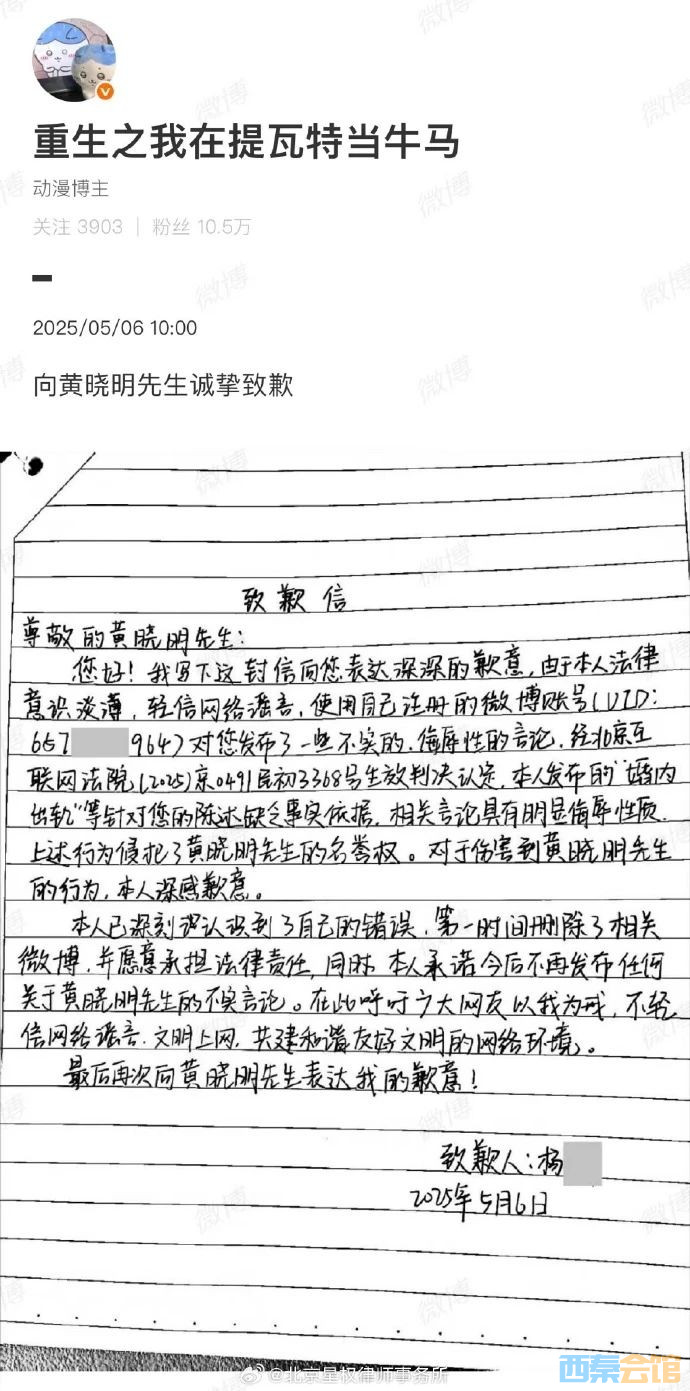 重生之我在提瓦特当牛马
动漫博主
关注 3903 | 粉丝 10.5万
2025/05/06 10:00
向黄晓明先生诚挚致歉
致歉信
尊敬的黄晓明先生：
您好！我写下这封信向您表达深深的歉意，由于本人法律
意识淡薄，轻信网络谣言，使用自己注册的微博账号(UID:
657 9647)对您发布了一些不实的、侮辱性的言论，经北京互
联网法院(2025)京0491民初3368号生效判决认定，本人发布的"婚内
出轨"等针对您的陈述缺乏事实依据，相关言论具有明显侮辱性质，
上述行为侵犯了黄晓明先生的名誉权。对于伤害到黄晓明先生
的行为，本人深感歉意。
本人已深刻认识到了自己的错误，第一时间删除了相关
微博，并愿意承担法律责任，同时，本人承诺今后不再发布任何
关于黄晓明先生的不实言论。在此呼吁广大网友以我为戒，不轻
信网络谣言，文明上网，共建和谐友好文明的网络环境。
最后再次向黄晓明先生表达我的歉意！
致歉人：杨
2025年5月6日
@北京星权律师事务所
西秦会馆
微博